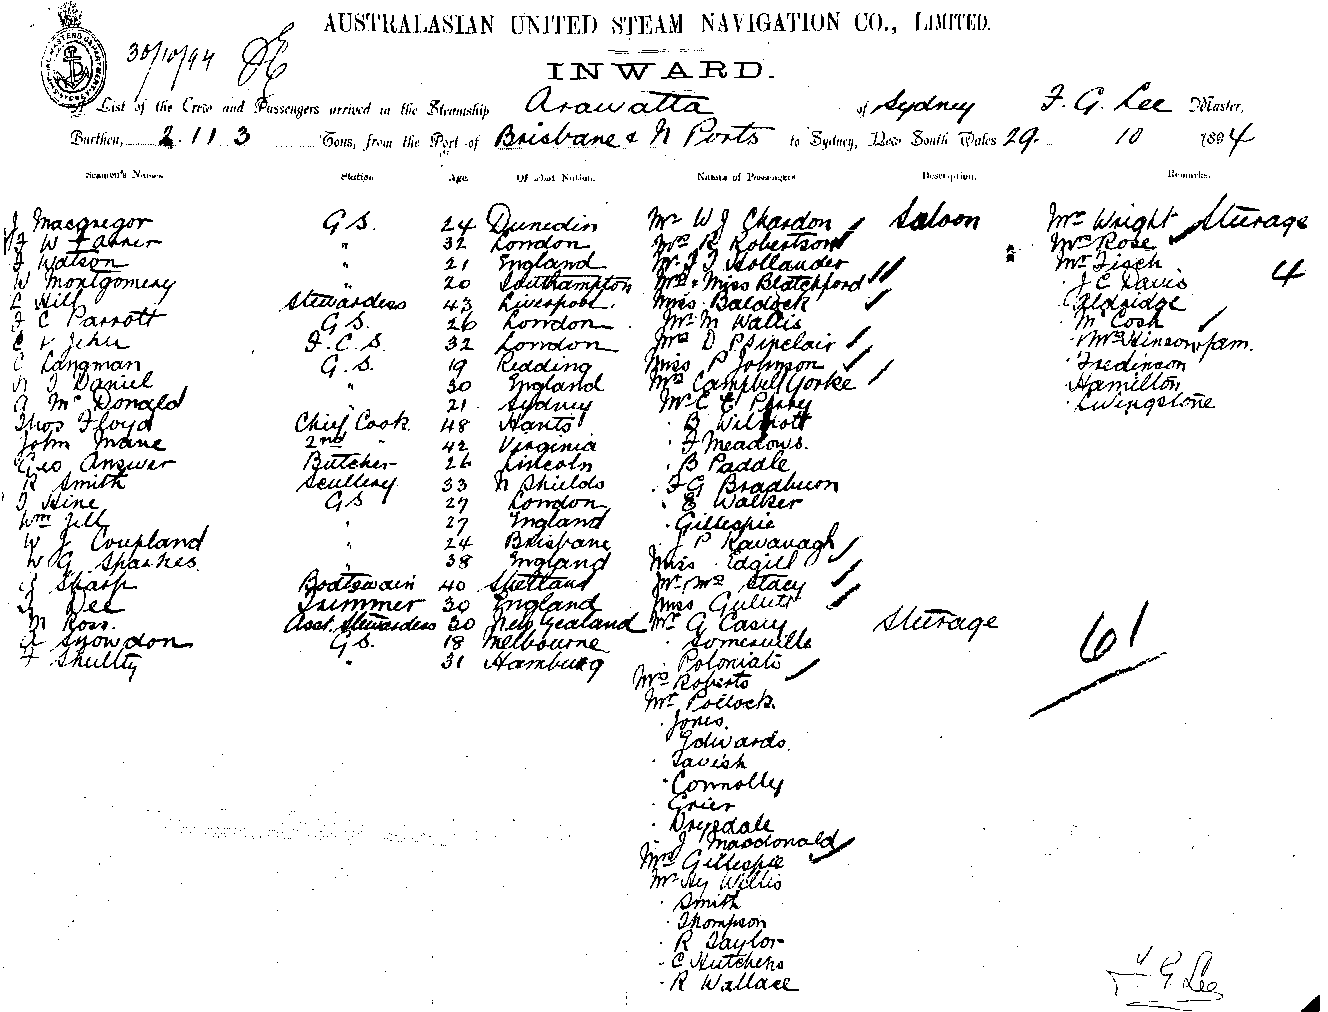 AUSTRALASIAN UNITED STEAM NAVIGATION CO., LIMITED.
30/10/94
INWARD.
A List of the Crew and Passengers arrived in the Steamship Arawatta of Sydney F. G. Lee Master,
Burthen, 2113 Tons, from the Port of Brisbane & N Ports to Sydney, New South Wales 29. 10 1894
Seamen's Names. Station Age. Of what Nation. Names of Passengers Description. Remarks.
J Macgregor G.S. 24 Dunedin Mr W J Chardon Saloon Mr Wright Sturage
W Farrer " 32 London Mrs R Robertson Mrs Rose
J Watson " 21 England Mr J J Hollander Mr Fisch 4
W Montgomery " 20 Southampton Mrs & Miss Blatchford J C Davis
E Hill Stewardess 43 Liverpool. Miss Baldock Aldridge
F C Parrott G.S. 26 London Mr M Wallis M Cosh
C V Jehu F.C.S. 32 London Mrs D P Sinclair Mrs Hinson & fam.
C Langman G.S. 19 Redding Miss P Johnson Fredinson
J Daniel " 30 England Mrs Campbell Yorke Hamilton
A McDonald " 21 Sydney Mr C E Perry Livingstone
Thos Floyd Chief Cook 48 Hants B Wilmott
John Mane 2nd " 42 Virginia F Meadows.
Geo Answer Butcher 26 Lincoln B Paddle
R Smith Scullery 33 N Shields F G Bradburn
J Hine G S 27 London E Walker
Wm Jell " 27 England Gillespie
W J Coupland " 24 Brisbane J P Kavanagh
W G Sparkes " 38 England Miss Edgill
J Sharp Boatswain 40 Shetland Mr & Mrs Stacy
Dee Trimmer 30 England Miss
M Ross. Asst. Stewardess 30 New Zealand Mr G Casey Sturage
A Snowdon G.S. 18 Melbourne Somerville 61
F Shultty " 31 Hamburg Poloniats
Mrs Roberts
Mr Pollock
Jones.
Edwards.
Tavish
Connolly
Grier
Drysdale
J Macdonald
Mrs Gillespie
Mr Hy Willis
Smith
Thompson
R Taylor
C Hutchens
R Wallace
F G Lee